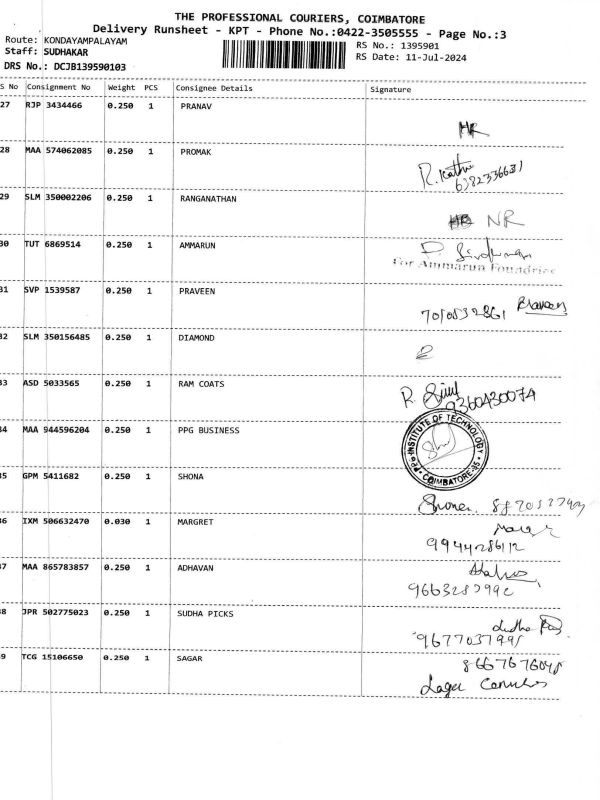 THE PROFESSIONAL COURIERS, COIMBATORE
Delivery Runsheet - KPT - Phone No.:0422-3505555 - Page No.:3
Route: KONDAYAMPALAYAM
RS No.: 1395901
Staff: SUDHAKAR
RS Date: 11-Jul-2024
DRS No.: DCJB139590103
S No Consignment No Weight PCS Consignee Details Signature
27 RJP 3434466 0.250 1 PRANAV
28 MAA 574062085 0.250 1 PROMAK
R.
6382336631
29 SLM 350002206 0.250 1 RANGANATHAN
NR
30 TUT 6869514 0.250 1 AMMARUN
For Ammarun Foundries
31 SVP 1539587 0.250 1 PRAVEEN
Praveen
32 SLM 350156485 0.250 1 DIAMOND
33 ASD 5033565 0.250 1 RAM COATS
R.
9360430074
34 MAA 944596204 0.250 1 PPG BUSINESS
INSTITUTE OF TECHNOLOGY
COIMBATORE-35
35 GPM 5411682 0.250 1 SHONA
Shona
36 IXM 506632470 0.030 1 MARGRET
37 MAA 865783857 0.250 1 ADHAVAN
38 JPR 502775023 0.250 1 SUDHA PICKS
39 TCG 15106650 0.250 1 SAGAR